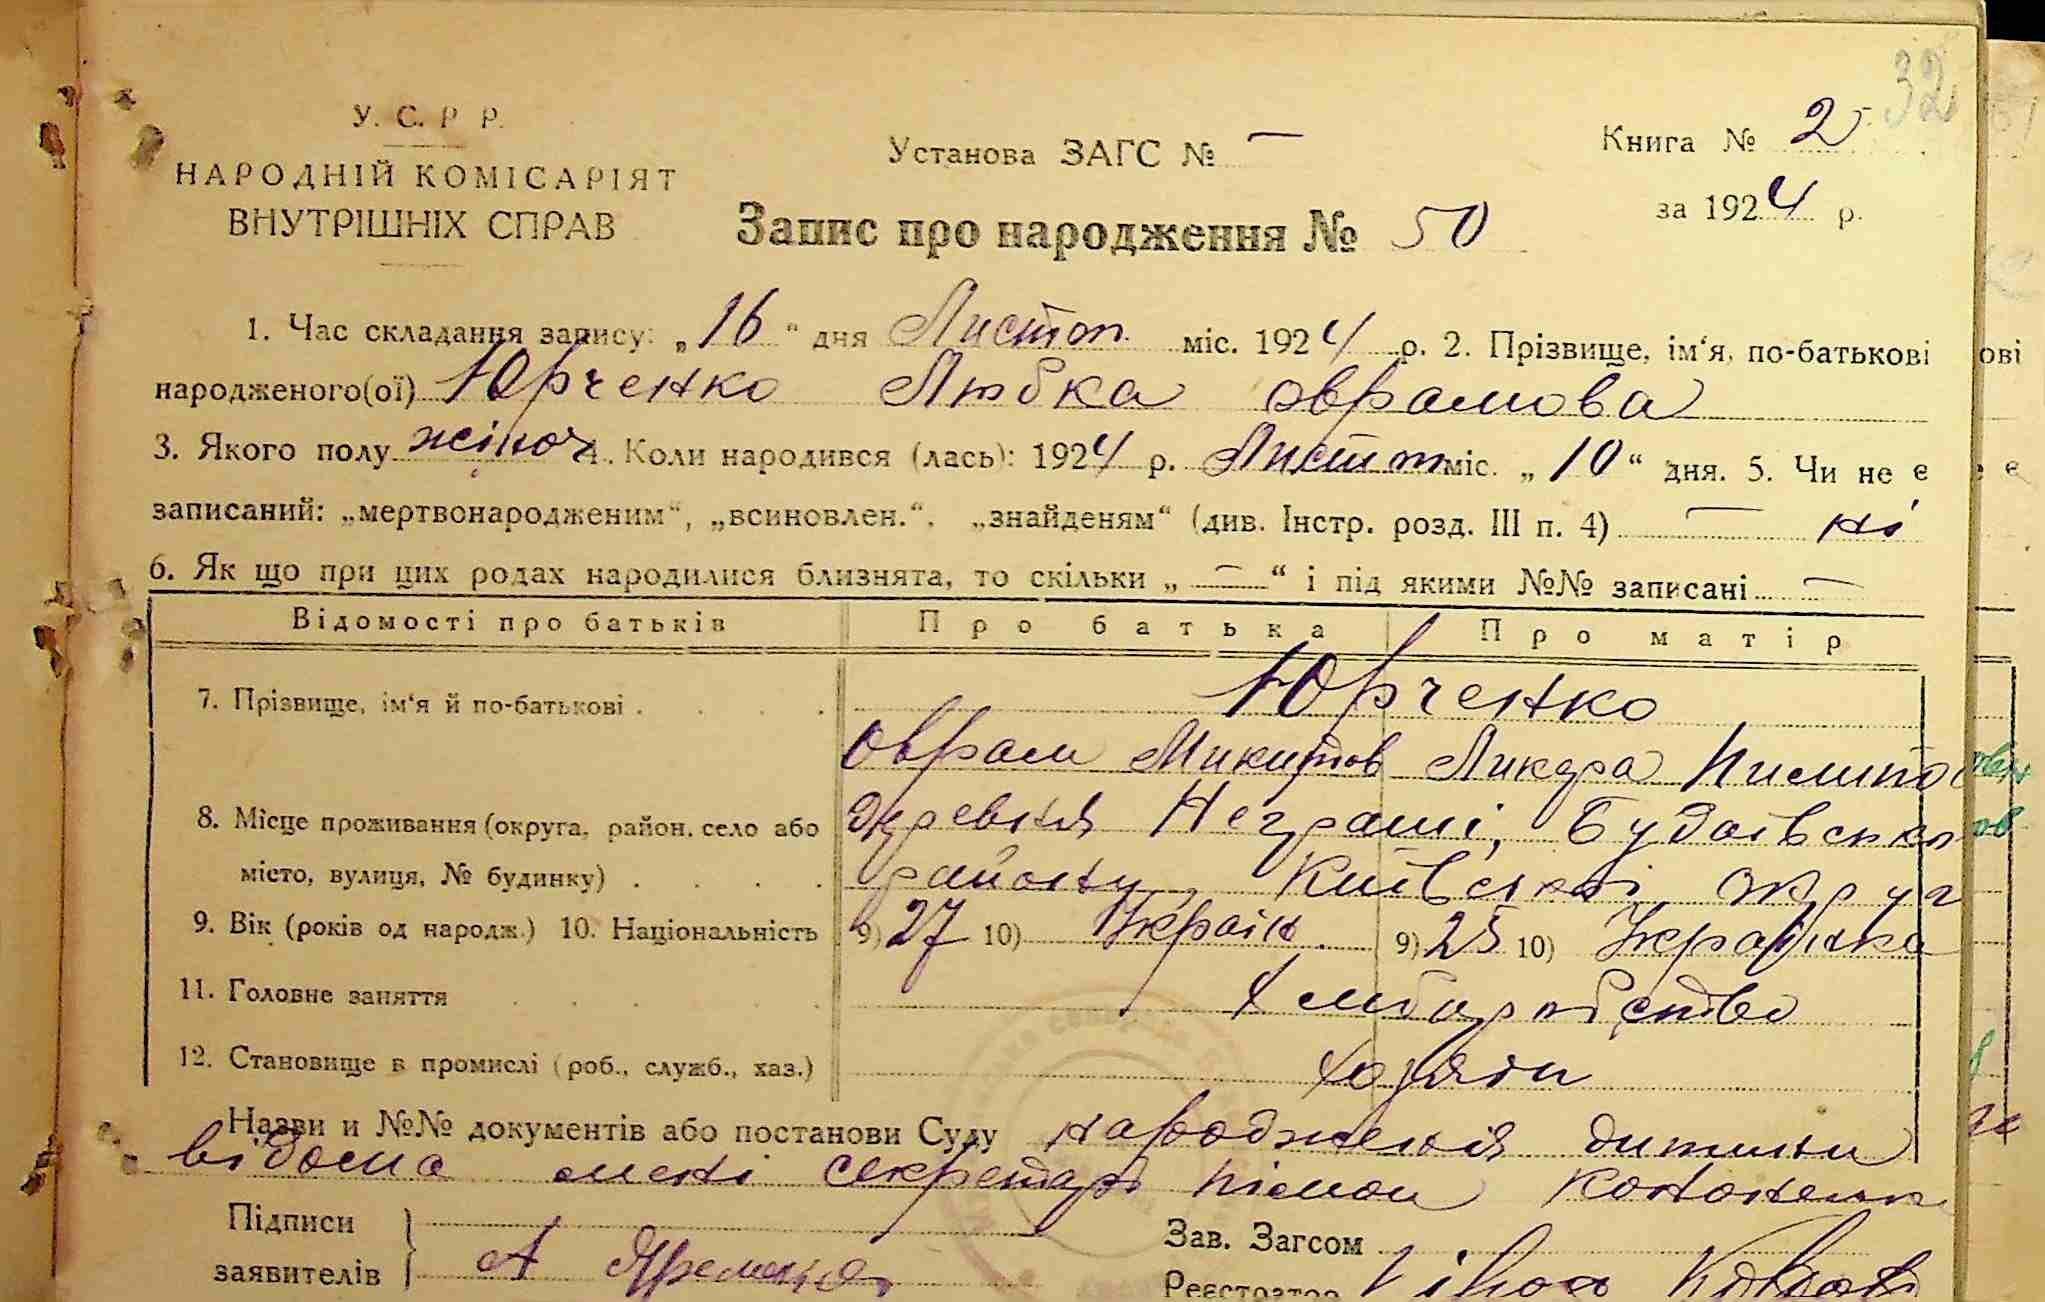 32
У. С. Р. Р.
НАРОДНІЙ КОМІСАРІЯТ
ВНУТРІШНІХ СПРАВ
Установа ЗАГС № —
Книга № 2
за 1924 р.
Запис про народження № 50
1. Час складання запису: „16“ дня Листоп. міс. 1924 р. 2. Прізвище, ім‘я, по-батькові
народженого(ої) Юрченко Любка Оврамова
3. Якого полу жіноч 4. Коли народився (лась): 1924 р. Листоп міс. „10“ дня. 5. Чи не є
записаний: „мертвонародженим“, „всиновлен.“, „знайденям“ (див. Інстр. розд. III п. 4) — ні
6. Як що при цих родах народилися близнята, то скільки „—“ і під якими №№ записані —
Відомості про батьків Про батька Про матір
7. Прізвище, ім‘я й по-батькові . . . . Юрченко
Оврам Микитов Ликера Пилипо
8. Місце проживання (округа, район, село або деревня Неграші, Будаївськ
місто, вулиця, № будинку) . . . . району, Київської округ
9. Вік (років од народж.) 10. Національність 9) 27 10) Україн. 9) 25 10) Українка
11. Головне заняття . . . . Хліборобство
12. Становище в промислі (роб., служб., хаз.) хозяин
Назви и №№ документів або постанови Суду народження дитини
відома мені секретарь
Підписи
заявителів А Яременко
Зав. Загсом
Реєстратор